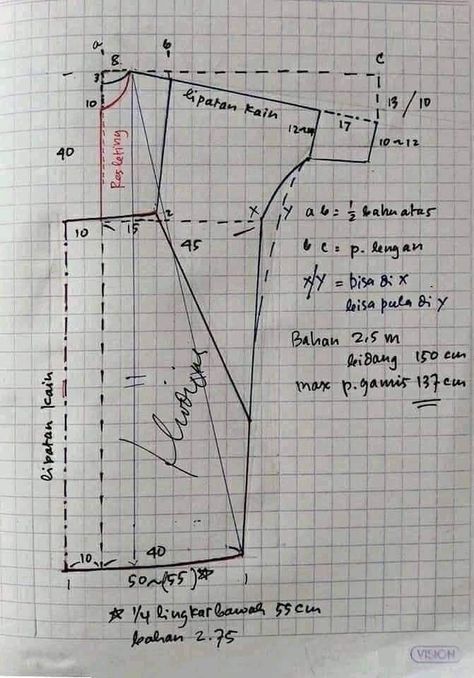 a
b
8
c
3
10
lipatan kain
13 / 10
17
12~
10~12
40
Resleting
x
y
2
10
15
45
a b = 1/2 bahu atas
b c = p. lengan
x/y = bisa di x
bisa pula di y
Bahan 2,5 m
lebidang 150 cm
max p. gamis 137 cm
lipatan kain
10
40
50~(55)☆
☆ 1/4 lingkar bawah 55 cm
bahan 2.75
VISION